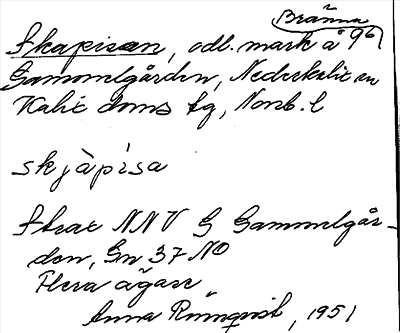 Bränna
Skapisan, odl. mark å 96
Gammelgården, Nederkalix sn
Kalix doms tg, Norrb. l
skjàpisa
Strax NNV G Gammelgår-
den, Gn 37 NO
Flera ägare
Anna Rönnqvist, 1951